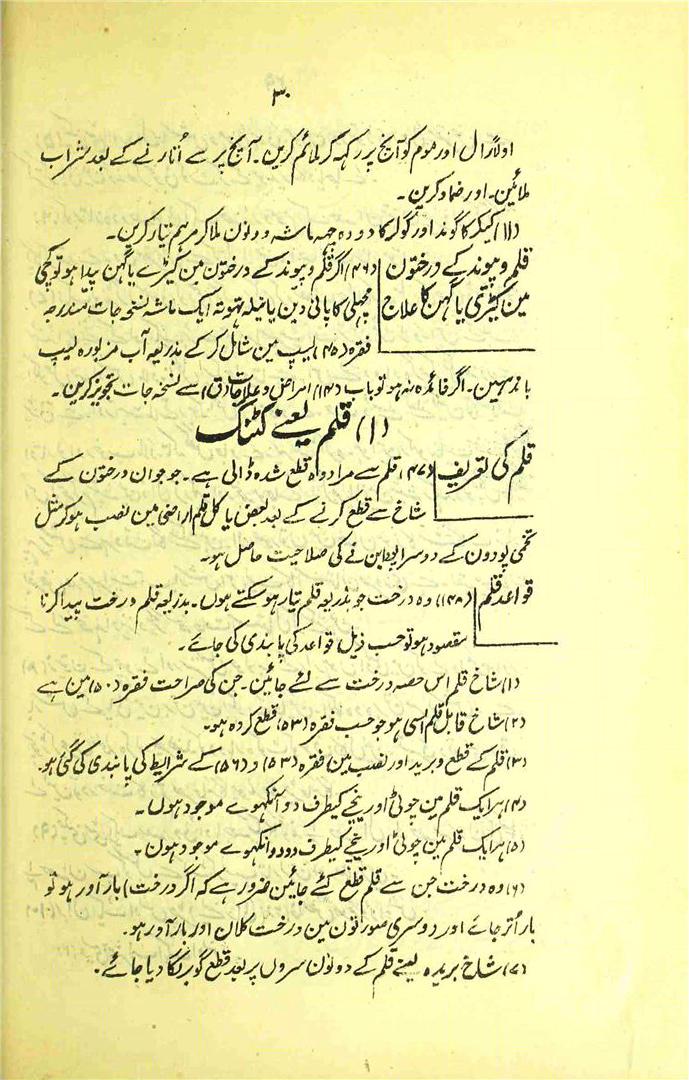 ۳۰
اولاً رال اور موم کو آنچ پر رکہہ کر ملائم کریں۔ آنچ پر سے اُتارنے کے بعد شراب
ملائین۔ اور ضماد کرین۔
(۱۱) کیکر کا گوند اور گولر کا دودہ چہہ ماشہ دونون ملا کر مرہم تیار کرین۔
قلم و پیوند کے درختون
مین کیڑی یا گہن کا علاج
(۴۶) اگر قلم و پیوند کے درختون مین کیڑے یا گہن پیدا ہو تو کچی
مچہلی کا پانی دین یا نیلہ تہوتہ ایک ماشہ نسخہ جات مندرجہ
فقرہ (۴۵) لیپ مین شامل کر کے بذریعہ آب مزبورہ لیپ
باندہین۔ اگر فائدہ نہ ہو تو باب (۱۴) امراض و علاجات سے نسخہ جات تجویز کرین۔
(۱) قلم یعنے کٹنگ
قلم کی تعریف
(۴۷) قلم سے مراد وہ قطع شدہ ڈالی ہے۔ جو جوان درختون کے
شاخ سے قطع کرنے کے بعد بعض یا کل قلم اراضی مین نصب ہو کر مثل
تخمی پودون کے دوسرا بننے کی صلاحیت حاصل ہو۔
قواعد قلم
(۴۸) وہ درخت جو بذریعہ قلم تیار ہو سکتے ہوں۔ بذریعہ قلم درخت پیدا کرنا
مقصود ہو تو حسب ذیل قواعد کی پابندی کی جائے۔
(۱) شاخ قلم اس حصہ درخت سے لئے جائین۔ جن کی صراحت فقرہ (۵۰) مین ہے
(۲) شاخ قابل قلم ایسی ہو جو حسب فقرہ (۵۳) قطع کردہ ہو۔
(۳) قلم کے قطع و برید اور نصب مین فقرہ (۵۳) و (۵۶) کے شرایط کی پابندی کی گئی ہو۔
(۴) ہر ایک قلم مین چوٹی اور نیچے کیطرف دو آنکہوے موجود ہوں۔
(۵) ہر ایک قلم مین چوٹی اور نیچے کیطرف دودو آنکہوے موجود ہون۔
(۶) وہ درخت جن سے قلم قطع کئے جائین ضرور ہے کہ اگر درخت) بار آور ہو تو
بار اُتر جائے اور دوسری صورتون مین درخت کلان اور بار آور ہو۔
(۷) شاخ بریدہ یعنے قلم کے دونون سروں پر بعد قطع گوبر لگا دیا جائے۔